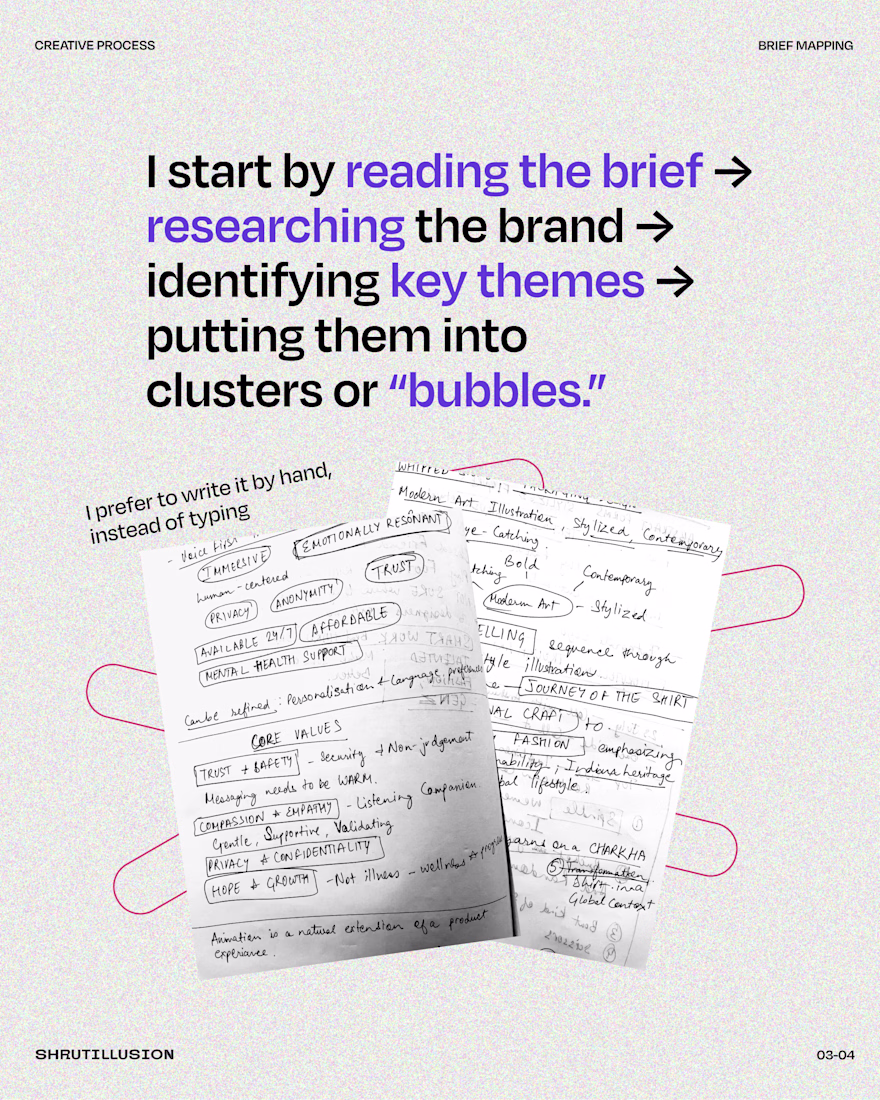 CREATIVE PROCESS
BRIEF MAPPING
I start by reading the brief →
researching the brand →
identifying key themes →
putting them into
clusters or “bubbles.”
I prefer to write it by hand,
instead of typing
- Voice First
IMMERSIVE
EMOTIONALLY RESONANT
human-centered
TRUST
PRIVACY
ANONYMITY
AVAILABLE 24/7
AFFORDABLE
MENTAL HEALTH SUPPORT
Can be refined : Personalisation + Language
CORE VALUES
TRUST + SAFETY - Security + Non-judgement
Messaging needs to be WARM.
COMPASSION & EMPATHY - Listening Companion.
Gentle, Supportive, Validating
PRIVACY & CONFIDENTIALITY
HOPE & GROWTH - Not illness - wellness &
Animation is a natural extension of a product
experience.
Modern Art Illustration, Stylized, Contemporary
ye-Catching
Bold
tching
Contemporary
Modern Art - Stylized
ELLING sequence through
tyle illustrations
JOURNEY OF THE SHIRT
NAL CRAFT to
FASHION emphasizing
nability, Indian heritage
bal lifestyle.
yarns on a CHARKHA
5 Transformation
Shirt in a
Global Context
SHRUTILLUSION
03-04